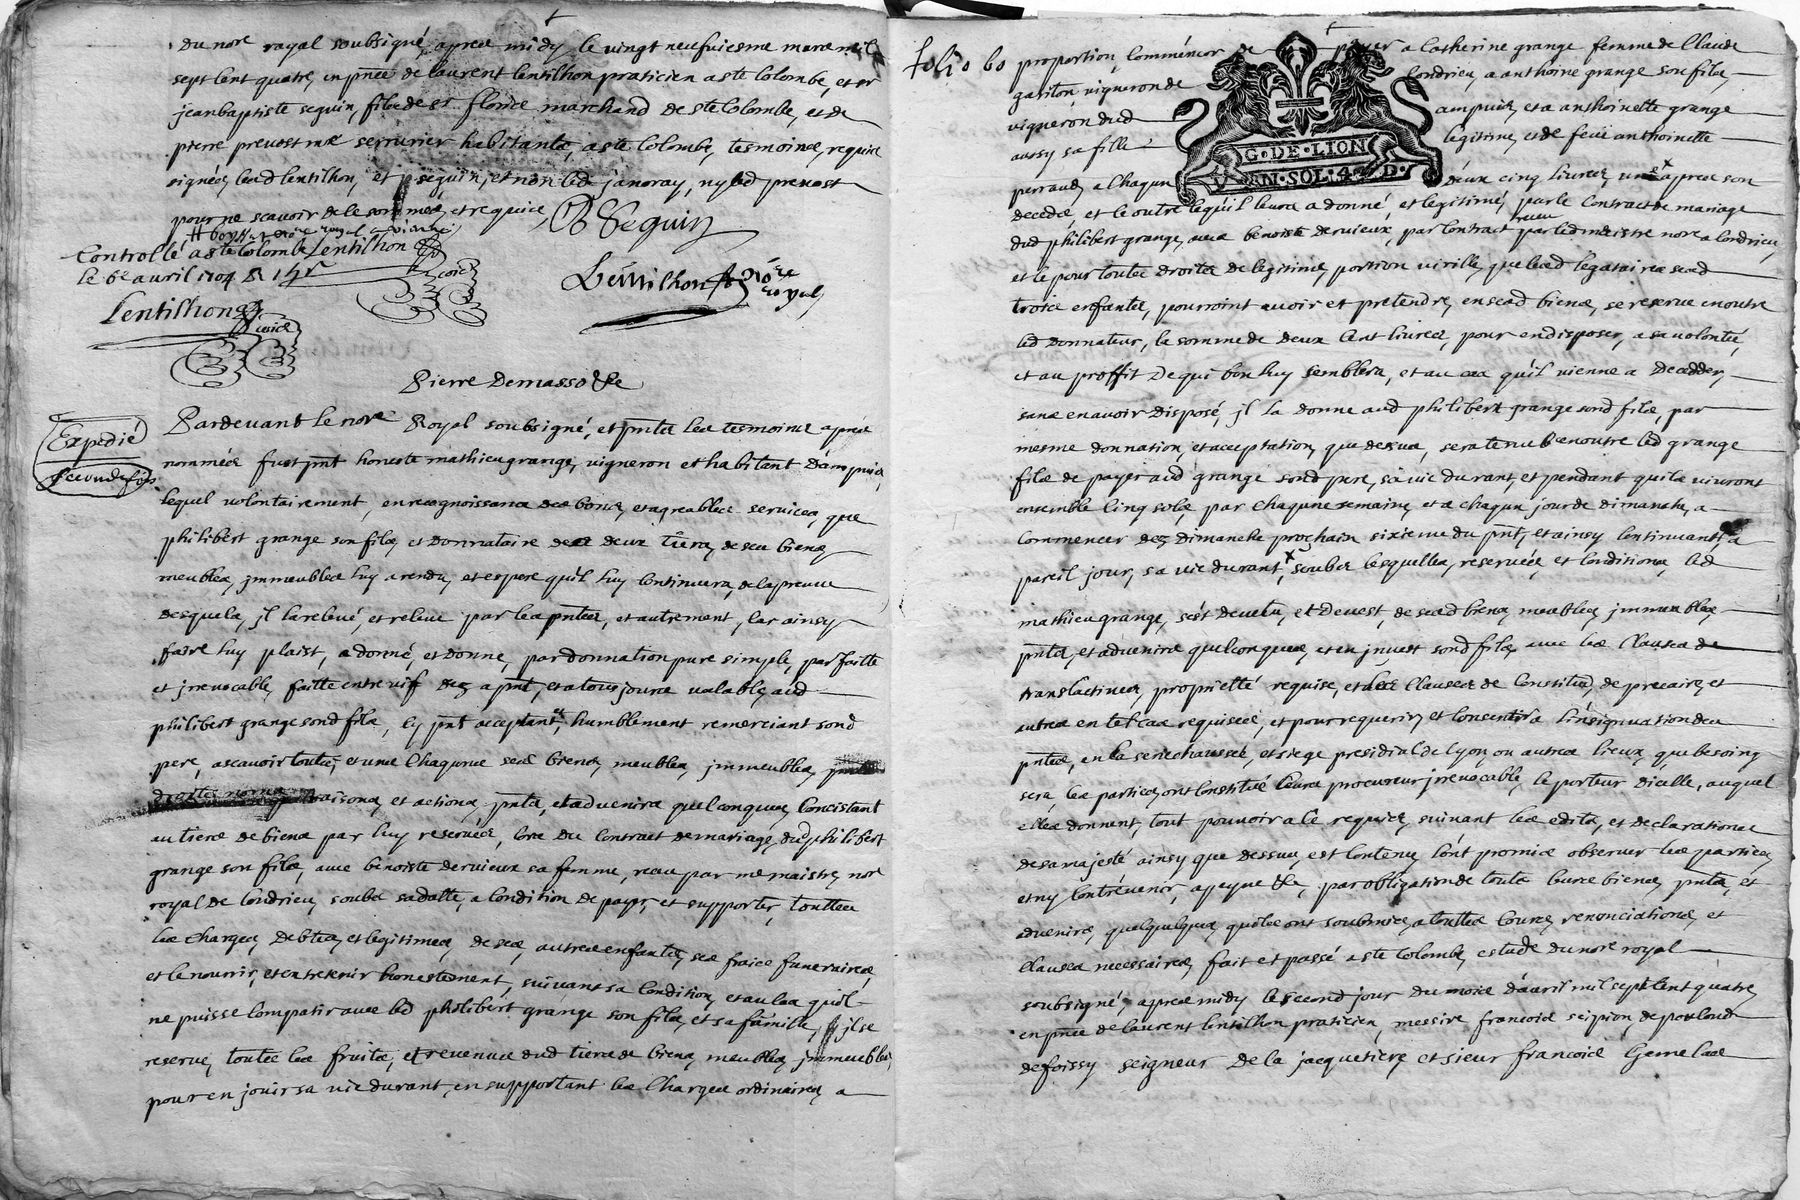 du nore royal soubsigné, apres midy le vingt neufuiesme mars mil
sept cent quatre, en pnce de laurent lentilhon praticien a ste Colombe, et sr
jean baptiste seguin, fils de sr florice marchand de ste Colombe, et de
pierre prevost me serrurier habitants, a ste Colombe, tesmoins, requis
signés, led lentilhon, et seguin, et non led janoray, ny led prevost
pour ne scavoir de ce sommes, et requis
BSeguin
Controllé a ste Colombe Lentilhon
le 6e avril 1704 R 14s
Lentilhon
Lentilhon nore royal
Pierre Demasso &c
Expedié
seconde fois
Pardevant le nore Royal soubsigné, et pnts les tesmoins apres
nommés fust pnt honeste mathieu grange, vigneron et habitant d'ampuis,
lequel volontairement, en recognoissance des bons, et agreables services, que
philibert grange son fils, et donnataire des deux tiers, de ses biens
meubles, jmmeubles luy a rendu, et espere qu'il luy continuera, de la preuve
desquels, jl la relevé, et releve par les pntes, et autrement, car ainsy
faire luy plaist, a donné, et donne, par donnation pure simple, parfaitte
et jrrevocable, faitte entre vif dez a pnt, et a tousjours valable, aud
philibert grange sond fils, cy pnt acceptant, et humblement remerciant sond
pere, ascavoir touts, et uns chaquns sesd biens, meubles, jmmeubles,
droits noms raisons, et actions, pnts, et advenirs quelconques, Concistant
au tiers de biens par luy reservés, lors du contract de mariage, dud philibert
grange son fils, avec benoiste dervieux sa femme, receu par me maistre, nore
royal de Condrieu, soubs sa datte, a condition de payer, et supporter, touttes
les charges, debtes, et legitimes, de ses, autres enfants, ses frais funeraires,
et le nourrir, et entretenir honestement, suivant sa condition, et au cas qu'il
ne puisse compatir avec led philibert grange son fils, et sa famille, jl se
reserve, touts les fruits, et revenus dud tiers de biens, meubles, jmmeubles,
pour en jouir sa vie durant, en supportant les charges ordinaires, a
folio 60 proportion, commencer de payer a Catherine grange femme de Claude
gariton vigneron de Condrieu, a anthoine grange son fils,
vigneron dud ampuis, et a anthoinette grange
aussy sa fille legitime, et de feüe anthoinette
perraud, a chaqun deux cinq livres, un apres son
G·DE·LION
AN·SOL·4·D·
decede, et le outre lequ'il leurs a donné, et legitimé, par le Contract de mariage
dud philibert grange, avec benoiste dervieux, par Contract receu par led maistre nore a Condrieu,
et le pour touts droits de legitime, portion virille, que lesd legataires sesd
trois enfants, pourroint avoir et pretendre, en sesd biens, se reserve en outre
led donnateur, la somme de deux Cent livres, pour en disposer, a sa volonté,
et au proffit de qui bon luy semblera, et au cas qu'il vienne a decedder,
sans en avoir disposé, jl la donne aud philibert grange sond fils, par
mesme donnation, et acceptation, que dessus, sera tenu en outre led grange
fils de payer aud grange sond pere, sa vie durant, et pendant quils vivront
ensemble cinq sols, par chaqune semaine, et a chaqun jour de dimanche, a
commencer dez dimanche prochain sixieme du pnt, et ainsy Continuant, a
pareil jour, sa vie durant, soubs lesquelles, reserves, et Conditions, led
mathieu grange, s'est devetu, et devest, de sesd biens, meubles, jmmeubles,
pnts, et advenirs quelconques, et en jnvest sond fils, avec les Clauses de
translactives, proprietté requise, et les Clauses de Constitut, de precaire, et
autres en tel cas requises, et pour requerir, et Consentir a l'insignuation des
pntes, en la senechaussée, et siege presidial de Lyon, ou autres lieux, que besoing
sera, les parties, ont Constitué leurs procureur jrrevocable, le porteur dicelle, auquel
elles donnent, tout pouvoir a ce requis, suivant les edits, et declarations
de sa majesté ainsy que dessus, est contenu, l'ont promis observer les parties,
et ny Contrevenir, a peyne &c, par obligation de touts leurs biens, pnts, et
advenirs, quelquonques, quils ont soubmis, a touttes Cours, renonciations, et
Clauses necessaires, fait et passé a ste Colombe, estude du nore royal
soubsigné, apres midy le second jour du mois d'avril mil sept cent quatre,
en pnce de laurent lentilhon praticien, messire francois scipion, de pouloud
de foissy seigneur de la jacquetiere, et sieur francois